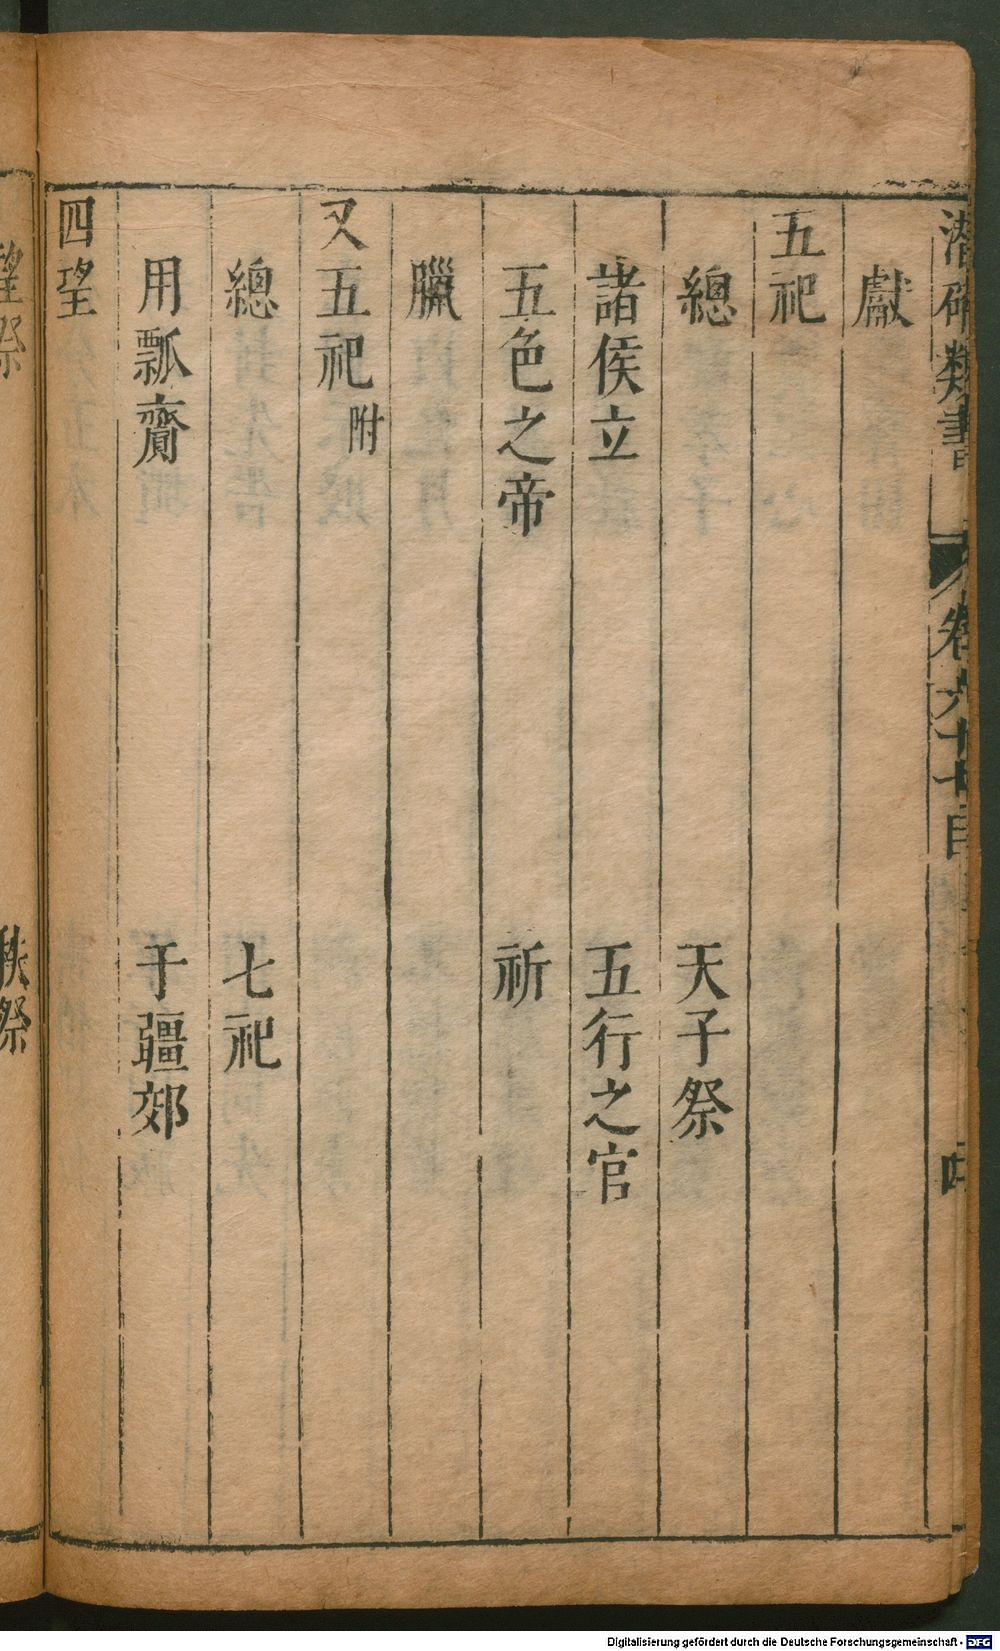 潛確類書 卷六十七目 四
獻
五祀
總 天子祭
諸侯立 五行之官
五色之帝 祈
臘
又五祀附
總 七祀
用瓢齎 于疆郊
四望
望祭 秩祭
Digitalisierung gefördert durch die Deutsche Forschungsgemeinschaft - DFG